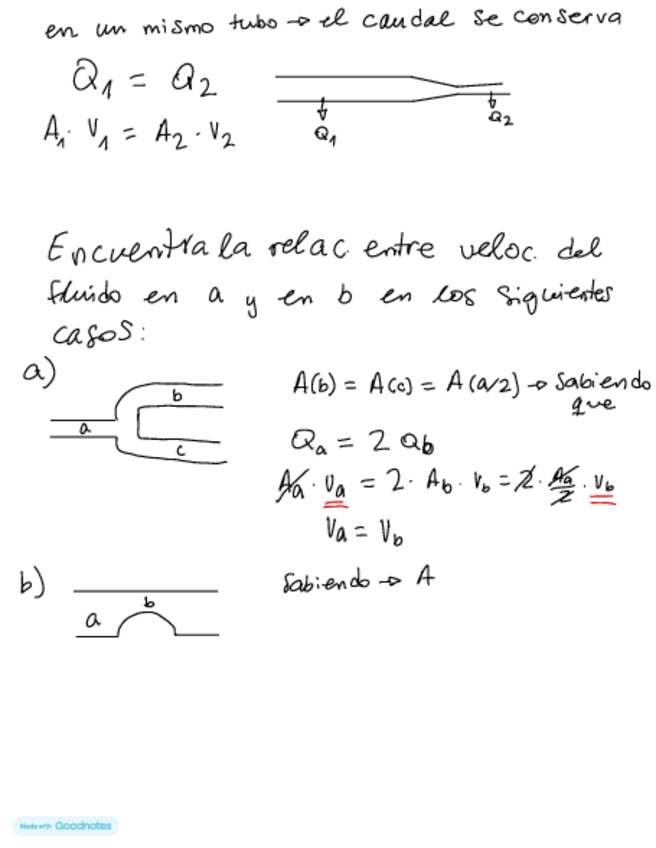 en un mismo tubo → el caudal se conserva
Q₁ = Q₂
A₁ · V₁ = A₂ · V₂
Q₁
Q₂
Encuentra la relac. entre veloc. del
fluido en a y en b en los siguientes
casos:
a)
a
b
c
A(b) = A(c) = A(a/2) → Sabiendo
que
Qa = 2 Qb
Aa · Va = 2 · Ab · Vb = 2 · Aa/2 · Vb
Va = Vb
b)
a
b
Sabiendo → A
Made with Goodnotes